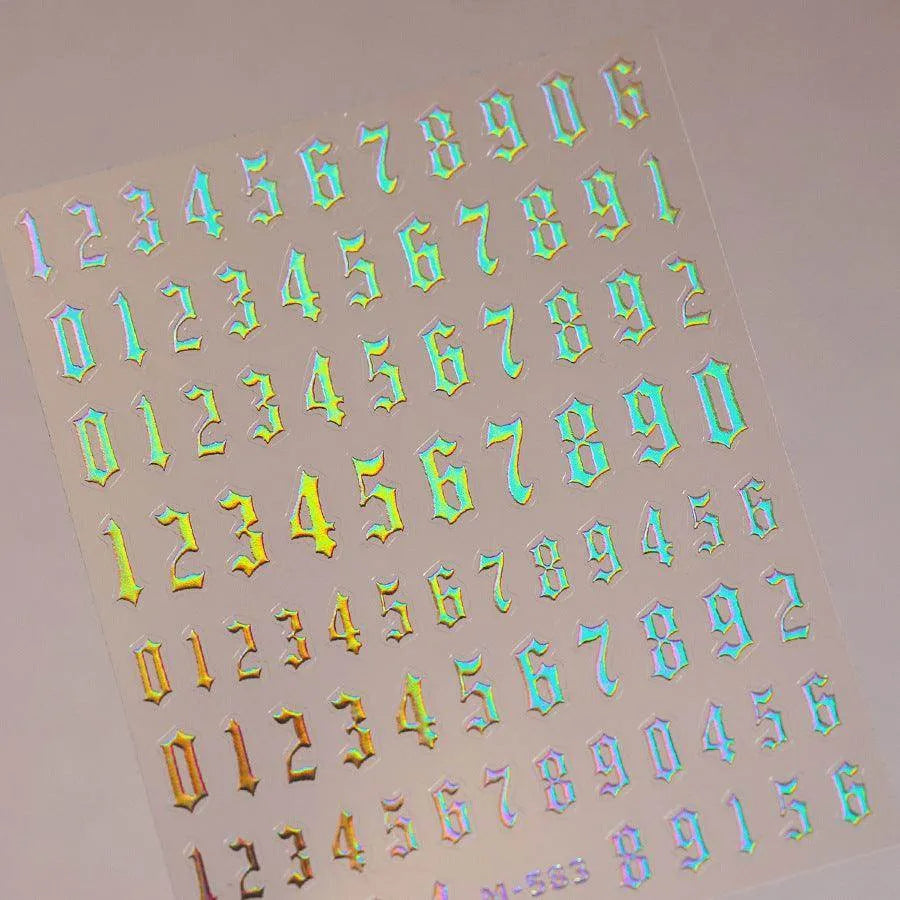 1 2 3 4 5 6 7 8 9 0 6
0 1 2 3 4 5 6 7 8 9 1
0 1 2 3 4 5 6 7 8 9 2
1 2 3 4 5 6 7 8 9 0
0 1 2 3 4 5 6 7 8 9 4 5 6
0 1 2 3 4 5 6 7 8 9 2
1 2 3 4 5 6 7 8 9 0 4 5 6
M-583 8 9 1 5 6